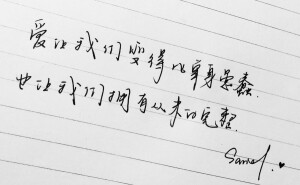 爱让我们变得比单身愚蠢.
也让我们拥有从未的完整.